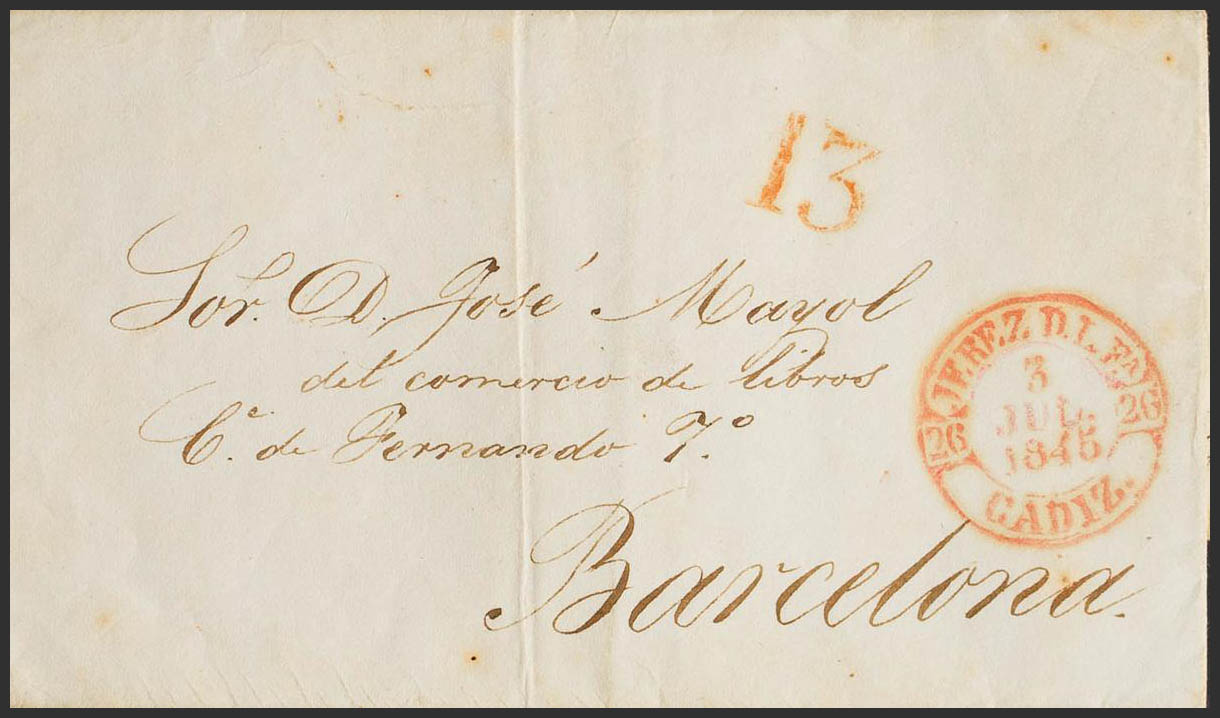 13
Sor. D. José Mayol
del comercio de libros
Ce. de Fernando 7º.
Barcelona.
JEREZ D.L. FA
26
3
JUL.
1845
26
CADIZ.